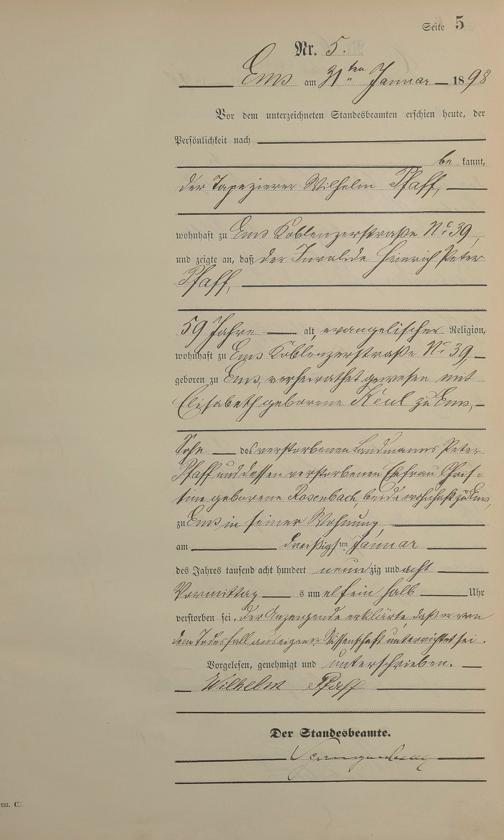 Seite 5
Nr. 5.
Ems am 31ten Januar 1898
Vor dem unterzeichneten Standesbeamten erschien heute, der
Persönlichkeit nach
be kannt,
der Tapezierer Wilhelm Pfaff,
wohnhaft zu Ems Koblenzerstraße No 39,
und zeigte an, daß der Invalide Heinrich Peter
Pfaff,
59 Jahre alt, evangelischer Religion,
wohnhaft zu Ems Koblenzerstraße No 39,
geboren zu Ems, verheirathet gewesen mit
Elisabeth geborene Keul zu Ems,
Sohn des verstorbenen Landmanns Peter
Pfaff und dessen verstorbenen Ehefrau Chris-
tine geborene Rosenbach, beide wohnhaft zu Ems,
zu Ems in seiner Wohnung,
am dreißigten Januar
des Jahres tausend acht hundert neun zig und acht
Vormittag s um elf ein halb Uhr
verstorben sei. Der Anzeigende erklärte, daß er von
dem Todesfall aus eigener Wissenschaft unterrichtet sei.
Vorgelesen, genehmigt und unterschrieben.
Wilhelm Pfaff
Der Standesbeamte.